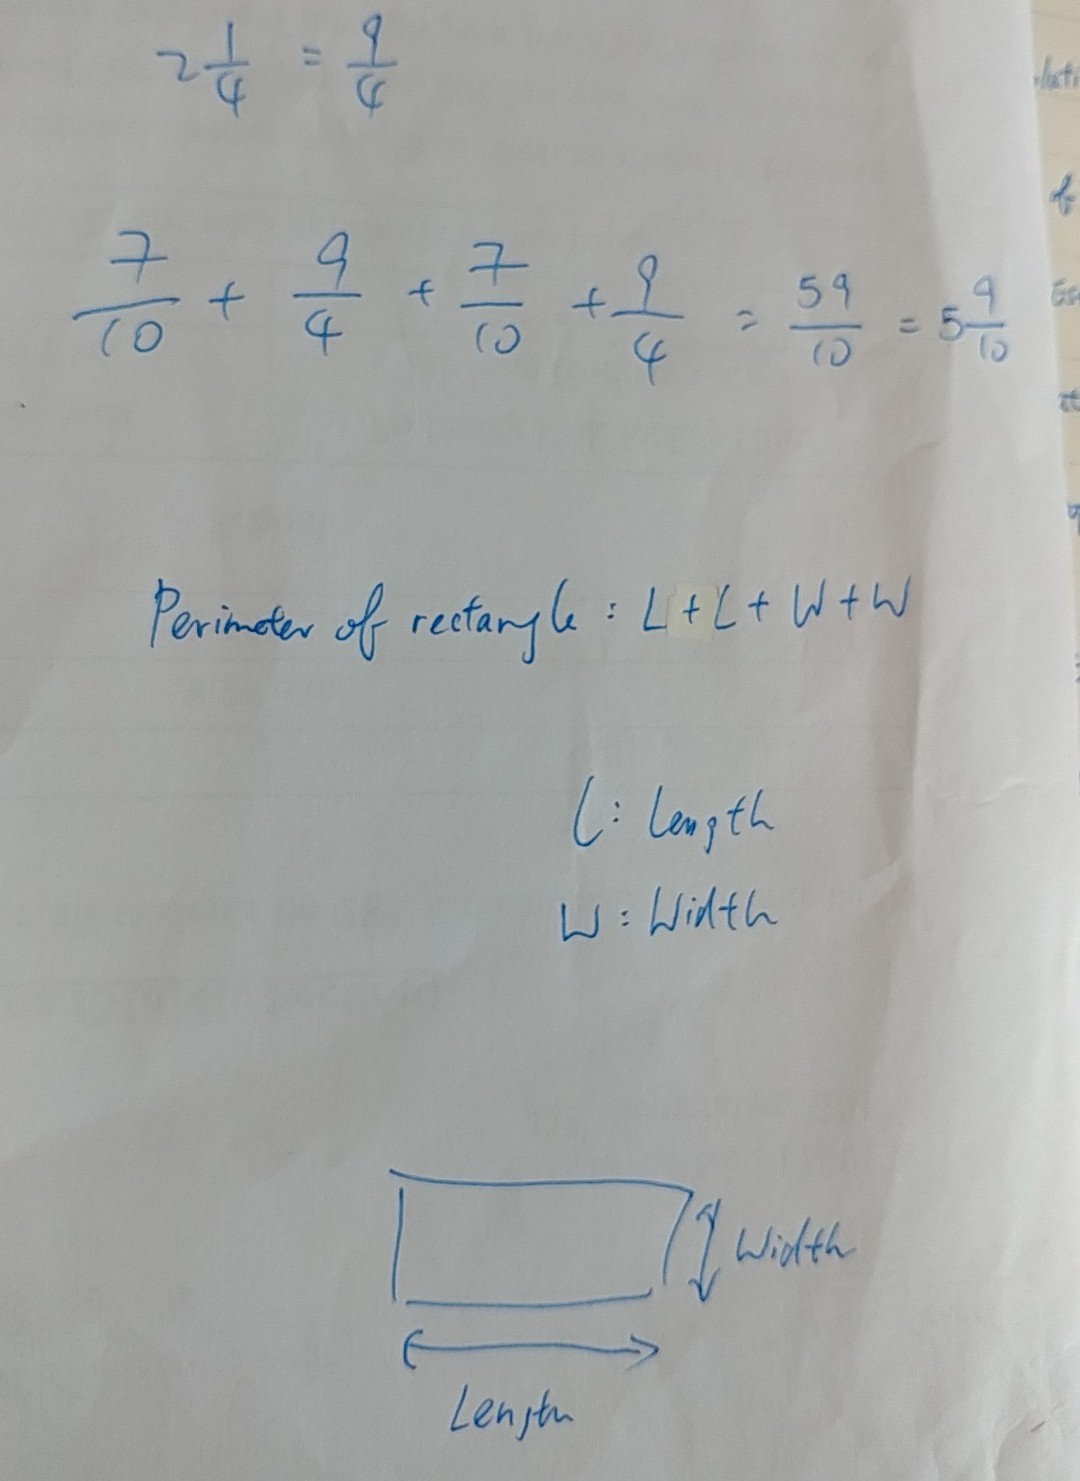 2 1/4 = 9/4
7/10 + 9/4 + 7/10 + 9/4 = 59/10 = 5 9/10
Perimeter of rectangle : L + L + W + W
L : Length
W : Width
Width
Length